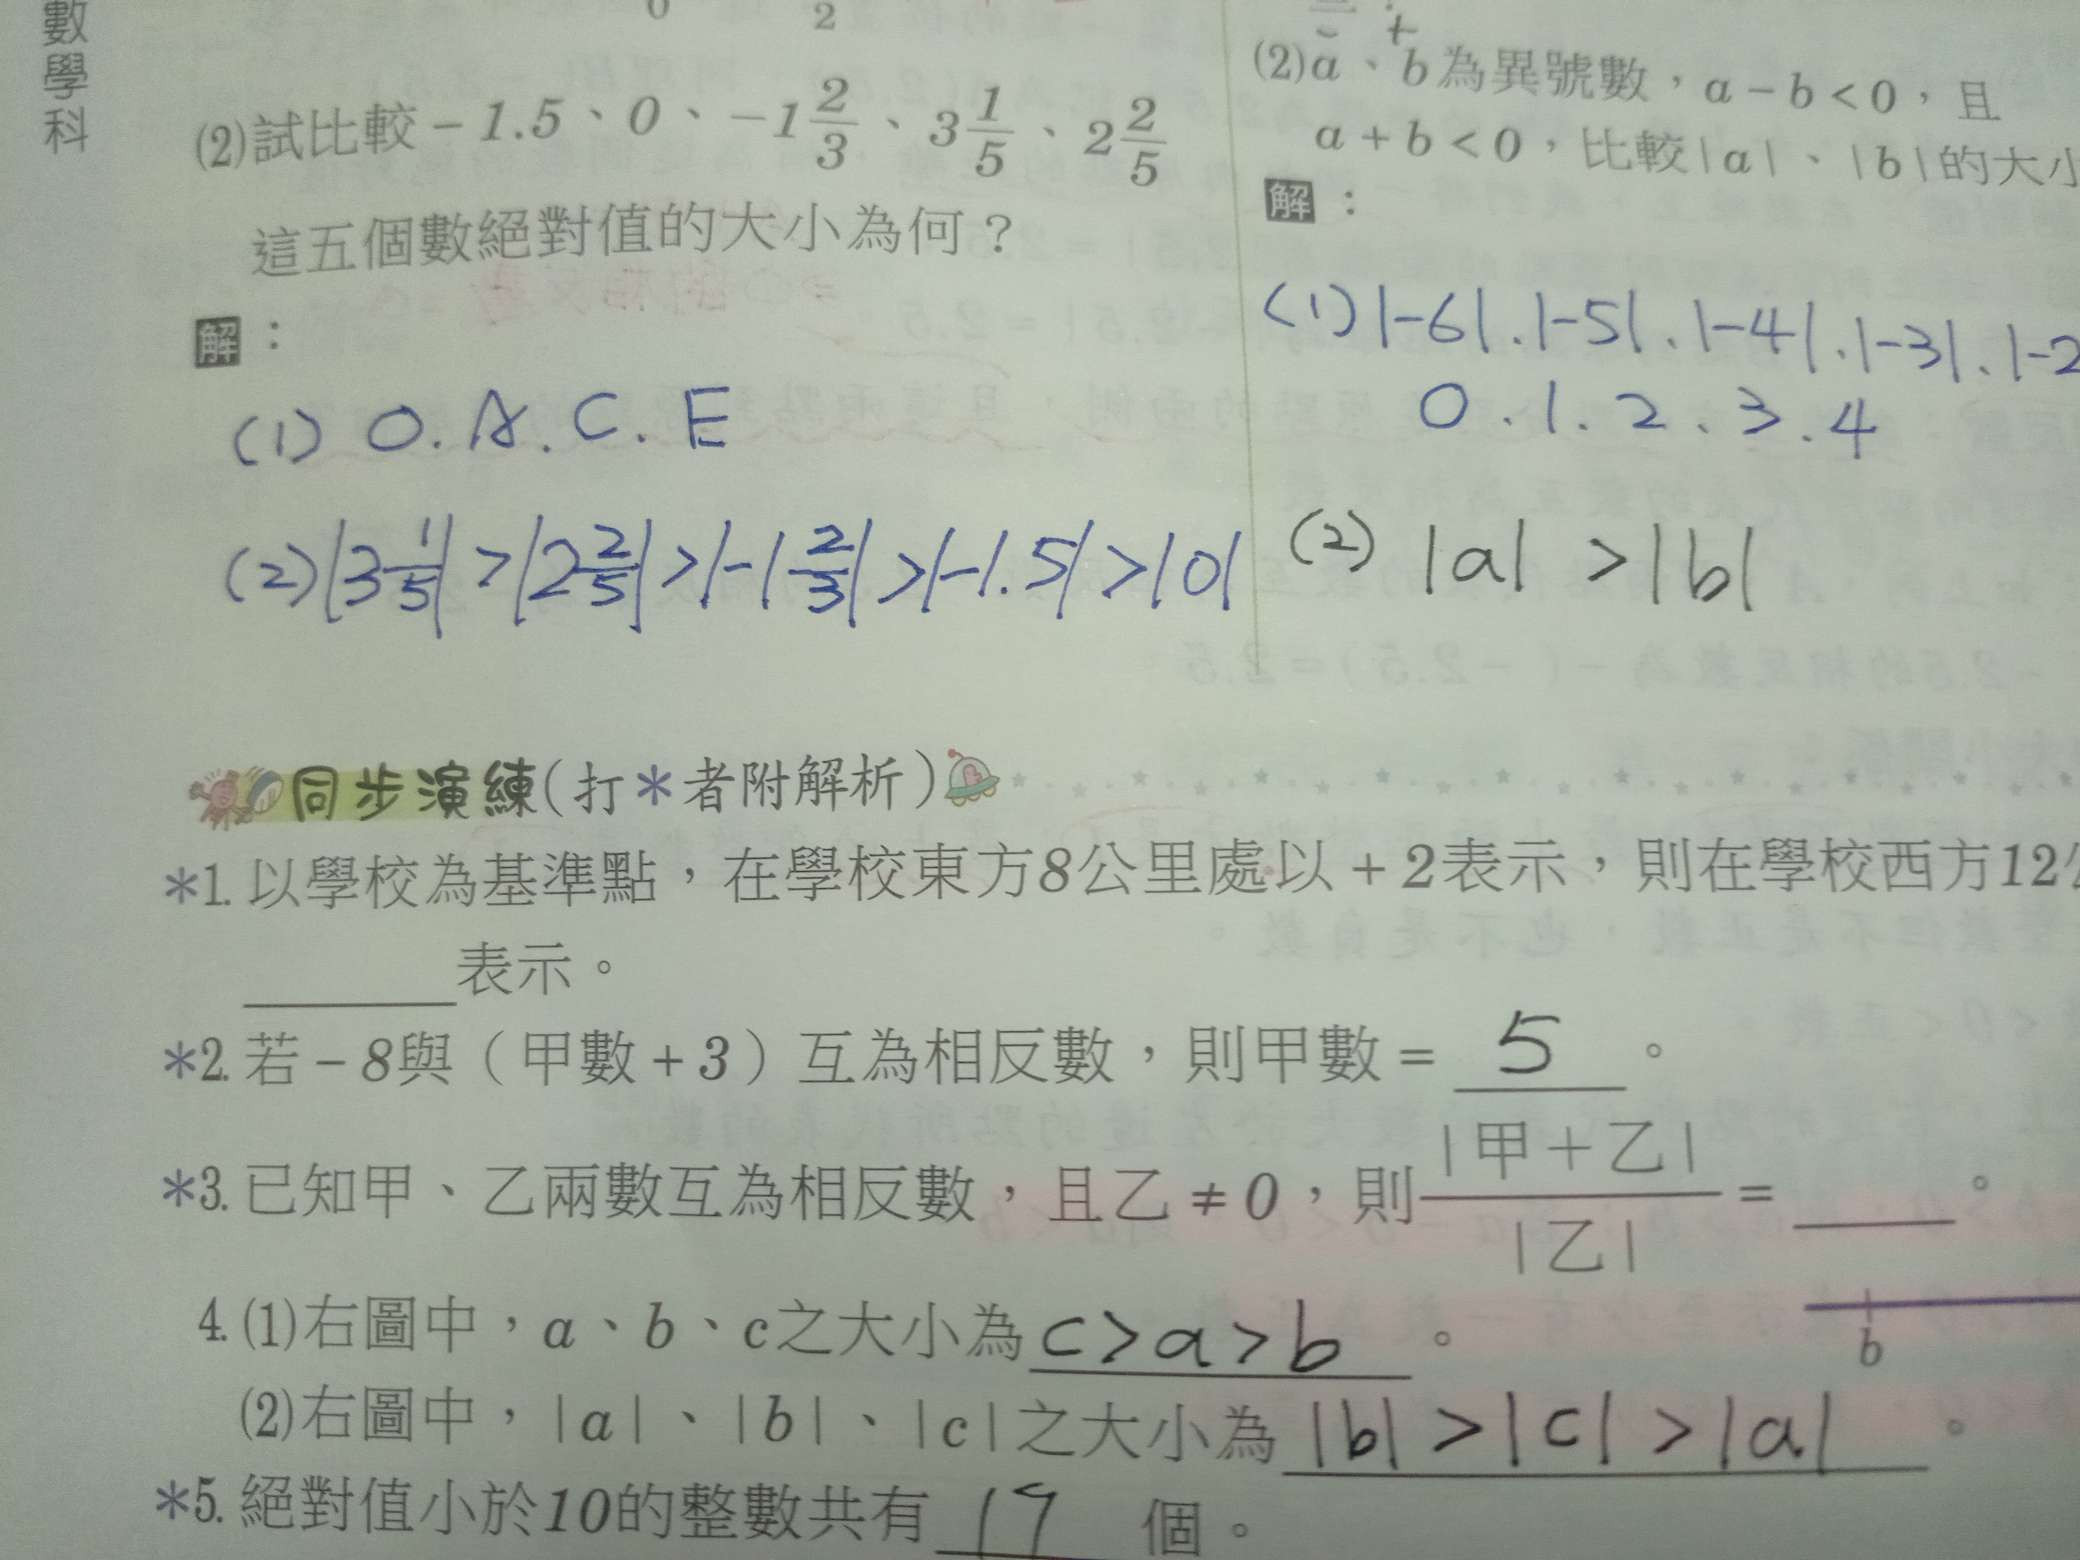 數學科
0 2
(2)試比較-1.5、0、-1 2/3、3 1/5、2 2/5
這五個數絕對值的大小為何？
解：
(1) O. A. C. E
(2)|3 1/5|>|2 2/5|>|-1 2/3|>|-1.5|>|0|
- +
(2)a、b為異號數，a-b<0，且
a+b<0，比較|a|、|b|的大小
解：
(1)|-6|.|-5|.|-4|.|-3|.|-2
0.1.2.3.4
(2) |a| >|b|
同步演練(打＊者附解析)
＊1.以學校為基準點，在學校東方8公里處以+2表示，則在學校西方12公
表示。
＊2.若-8與（甲數+3）互為相反數，則甲數=5。
＊3.已知甲、乙兩數互為相反數，且乙≠0，則|甲+乙|/|乙|=____。
4.(1)右圖中，a、b、c之大小為c>a>b。
b
(2)右圖中，|a|、|b|、|c|之大小為|b|>|c|>|a|。
＊5.絕對值小於10的整數共有19個。